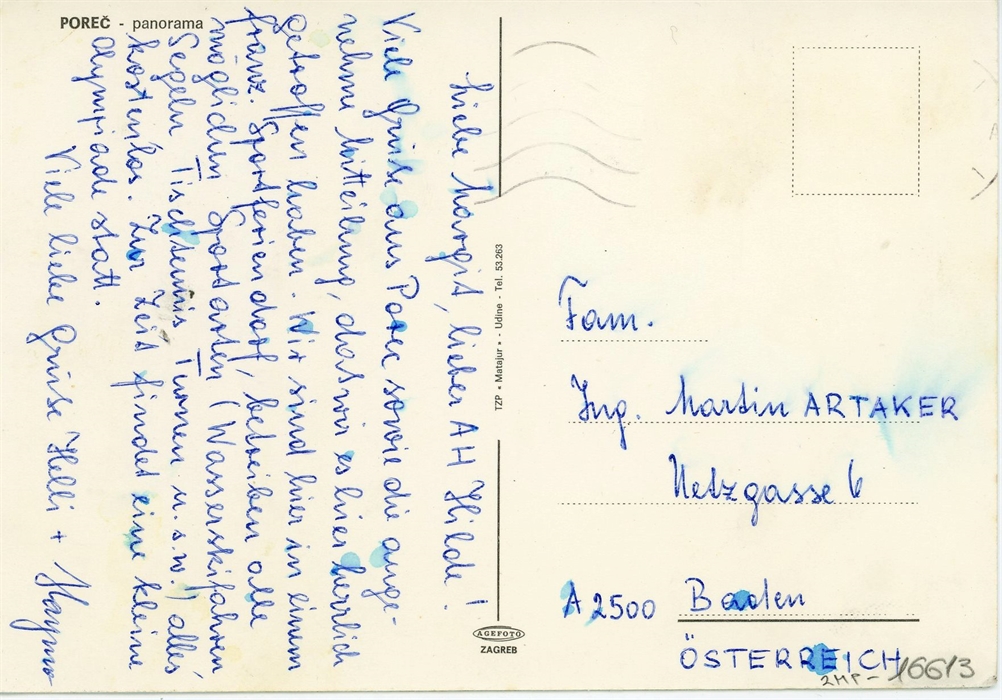 POREČ - panorama
Liebe Margit, lieber AH Hilde!
Viele Grüße aus Porec sowie die ange-
nehme Mitteilung, das wir es hier herrlich
getroffen haben. Wir sind hier in einem
franz. Sportferiendorf, betreiben alle
möglichen Sportarten (Wasserskifahren,
Segeln Tischtennis Turnen u.s.w.) alles
kostenlos. Zur Zeit findet eine kleine
Olympiade statt.
Viele liebe Grüße Helli +
TZP « Matajur » - Udine - Tel. 53.263
AGEFOTO
ZAGREB
Fam.
Ing. Martin ARTAKER
Netzgasse 6
A 2500 Baden
ÖSTERREICH
2MP- 166/3